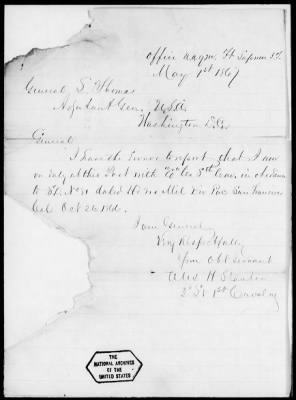 May 1st 1867
General L. Thomas
Adjutant Gen. U.S.A.
Washington D.C.
General
I have the honor to report that I am
on duty at this Post with Co 8th Cav. in obedience
to S.O. No dated Hd Qrs Mil Div Pac San Francisco
Cal Oct 26 1866.
I am General
Very Respectfully
Your obt servant
H Stanton
2d Lt 1st Cavalry
THE
NATIONAL ARCHIVES
OF THE
UNITED STATES